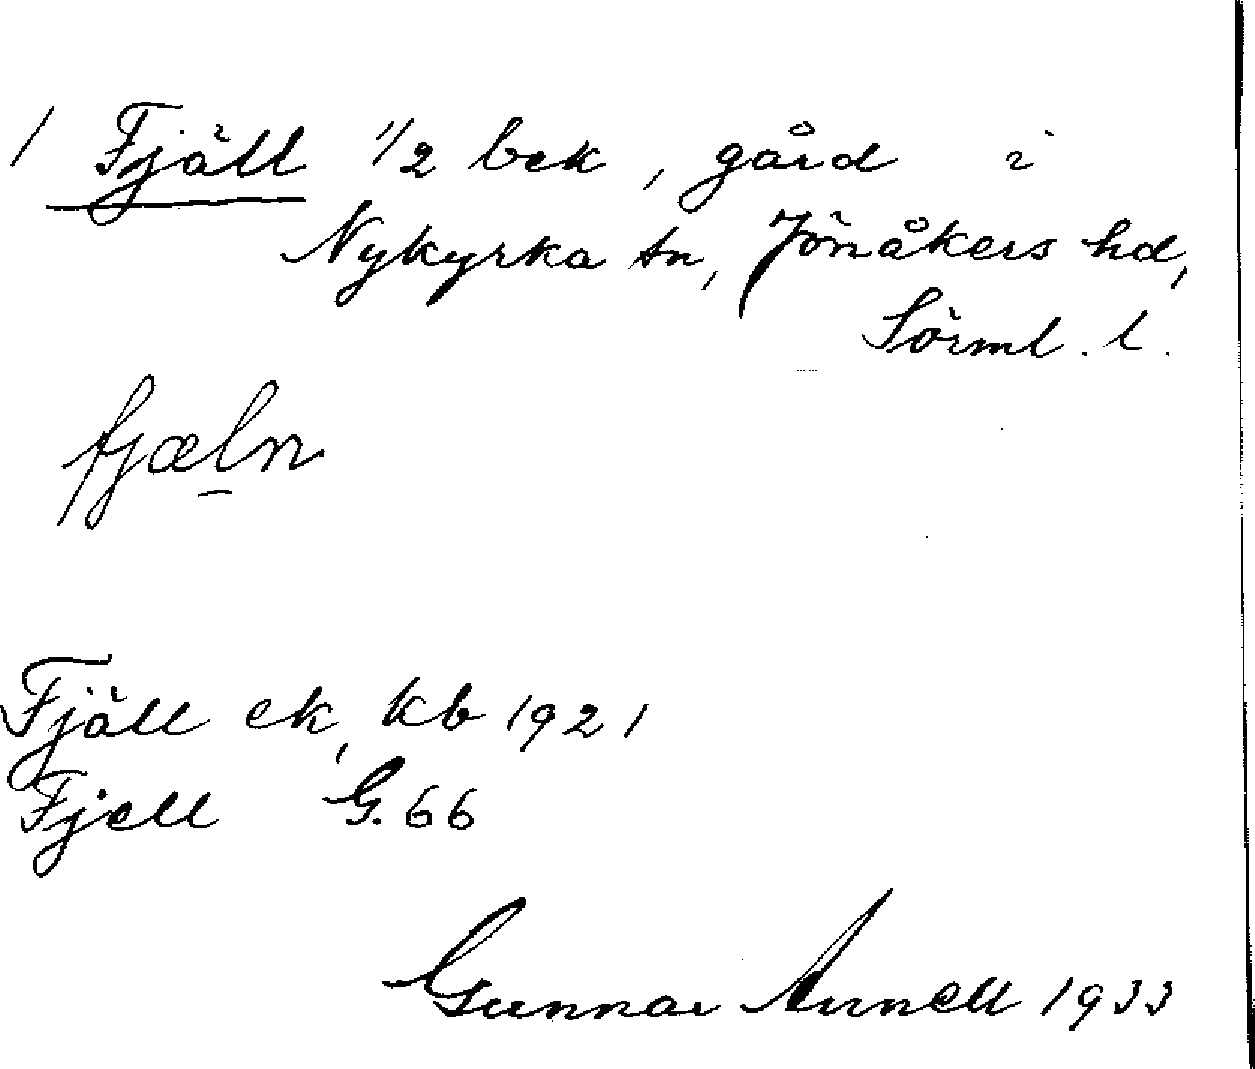 / Fjäll 1/2 bek, gård i
Nykyrka sn, Jönåkers hd,
Sörml. l.
fjæl̠n
Fjäll ek, kb 1921
Fjell G. 66
Gunnar Arnell 1933